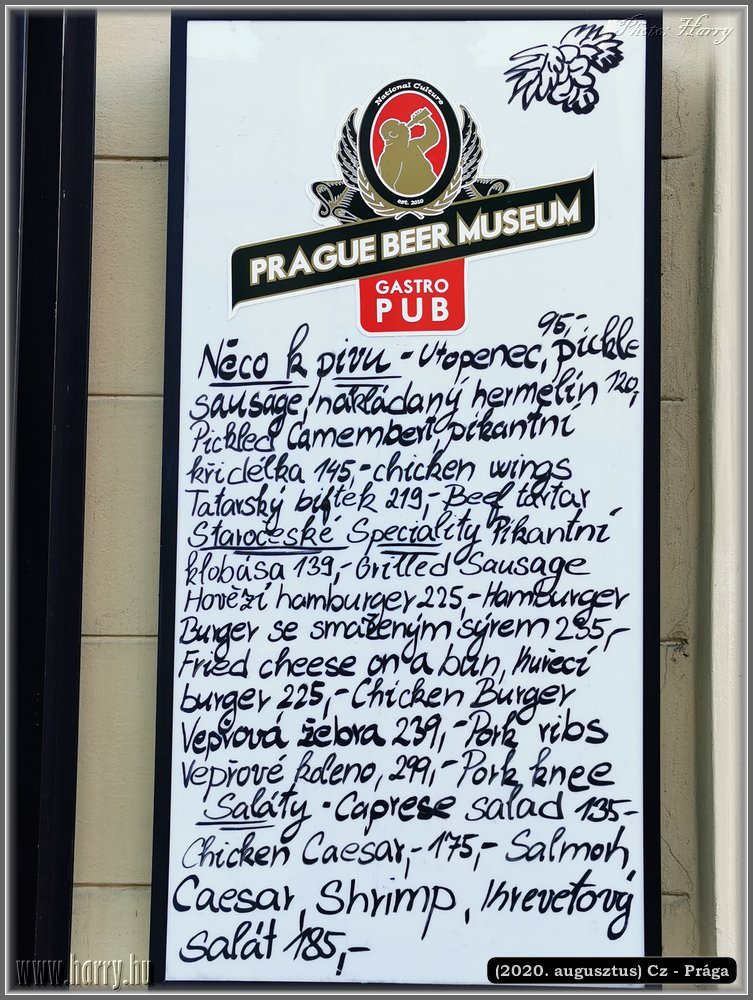 Photo: Harry
National Culture
est. 2010
PRAGUE BEER MUSEUM
GASTRO
PUB
95,-
Něco k pivu - Utopenec, pickle
sausage, nakládaný hermelín 120,
Pickled Camembert, pikantní
křidélka 145,- chicken wings
Tatarský biftek 219,- Beef tartar
Staročeské Speciality Pikantní
klobása 139,- Grilled Sausage
Hovězí hamburger 225,- Hamburger
Burger se smaženým sýrem 235,-
Fried cheese on a bun, Kuřecí
burger 225,- Chicken Burger
Vepřová žebra 239,- Pork ribs
Vepřové koleno, 299,- Pork knee
Saláty - Caprese salad 135-
Chicken Caesar,- 175,- Salmon,
Caesar, Shrimp, Krevetový
salát 185,-
www.harry.hu
(2020. augusztus) Cz - Prága